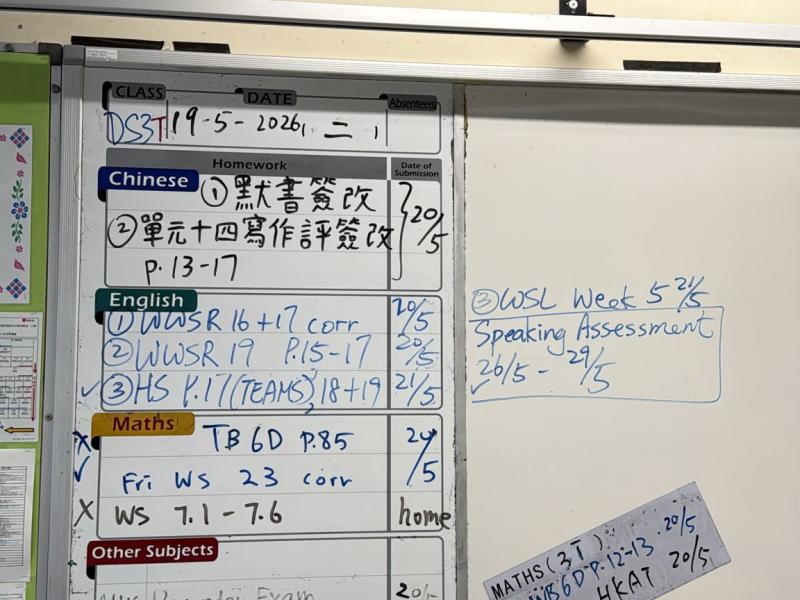 CLASS DATE Absentee(s)
DS3T 19-5-2026, 二
Homework Date of Submission
Chinese ① 默書簽改 20/5
② 單元十四寫作評簽改
p.13-17
English
① WWSR 16+17 corr 20/5
② WWSR 19 P.15-17 20/5
✓ ③ HS P.17(TEAMS),18+19 21/5
Maths
X TB 6D P.85
✓ Fri WS 23 corr /5
X WS 7.1-7.6 home
Other Subjects
Exam
③ WSL Week 5 21/5
Speaking Assessment
26/5 - 29/5
✓
MATHS(3T)
WB6D P.12-13 20/5
HKAT 20/5